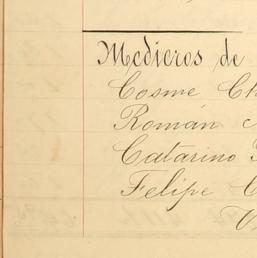 Medieros de
Cosme
Román
Catarino
Felipe